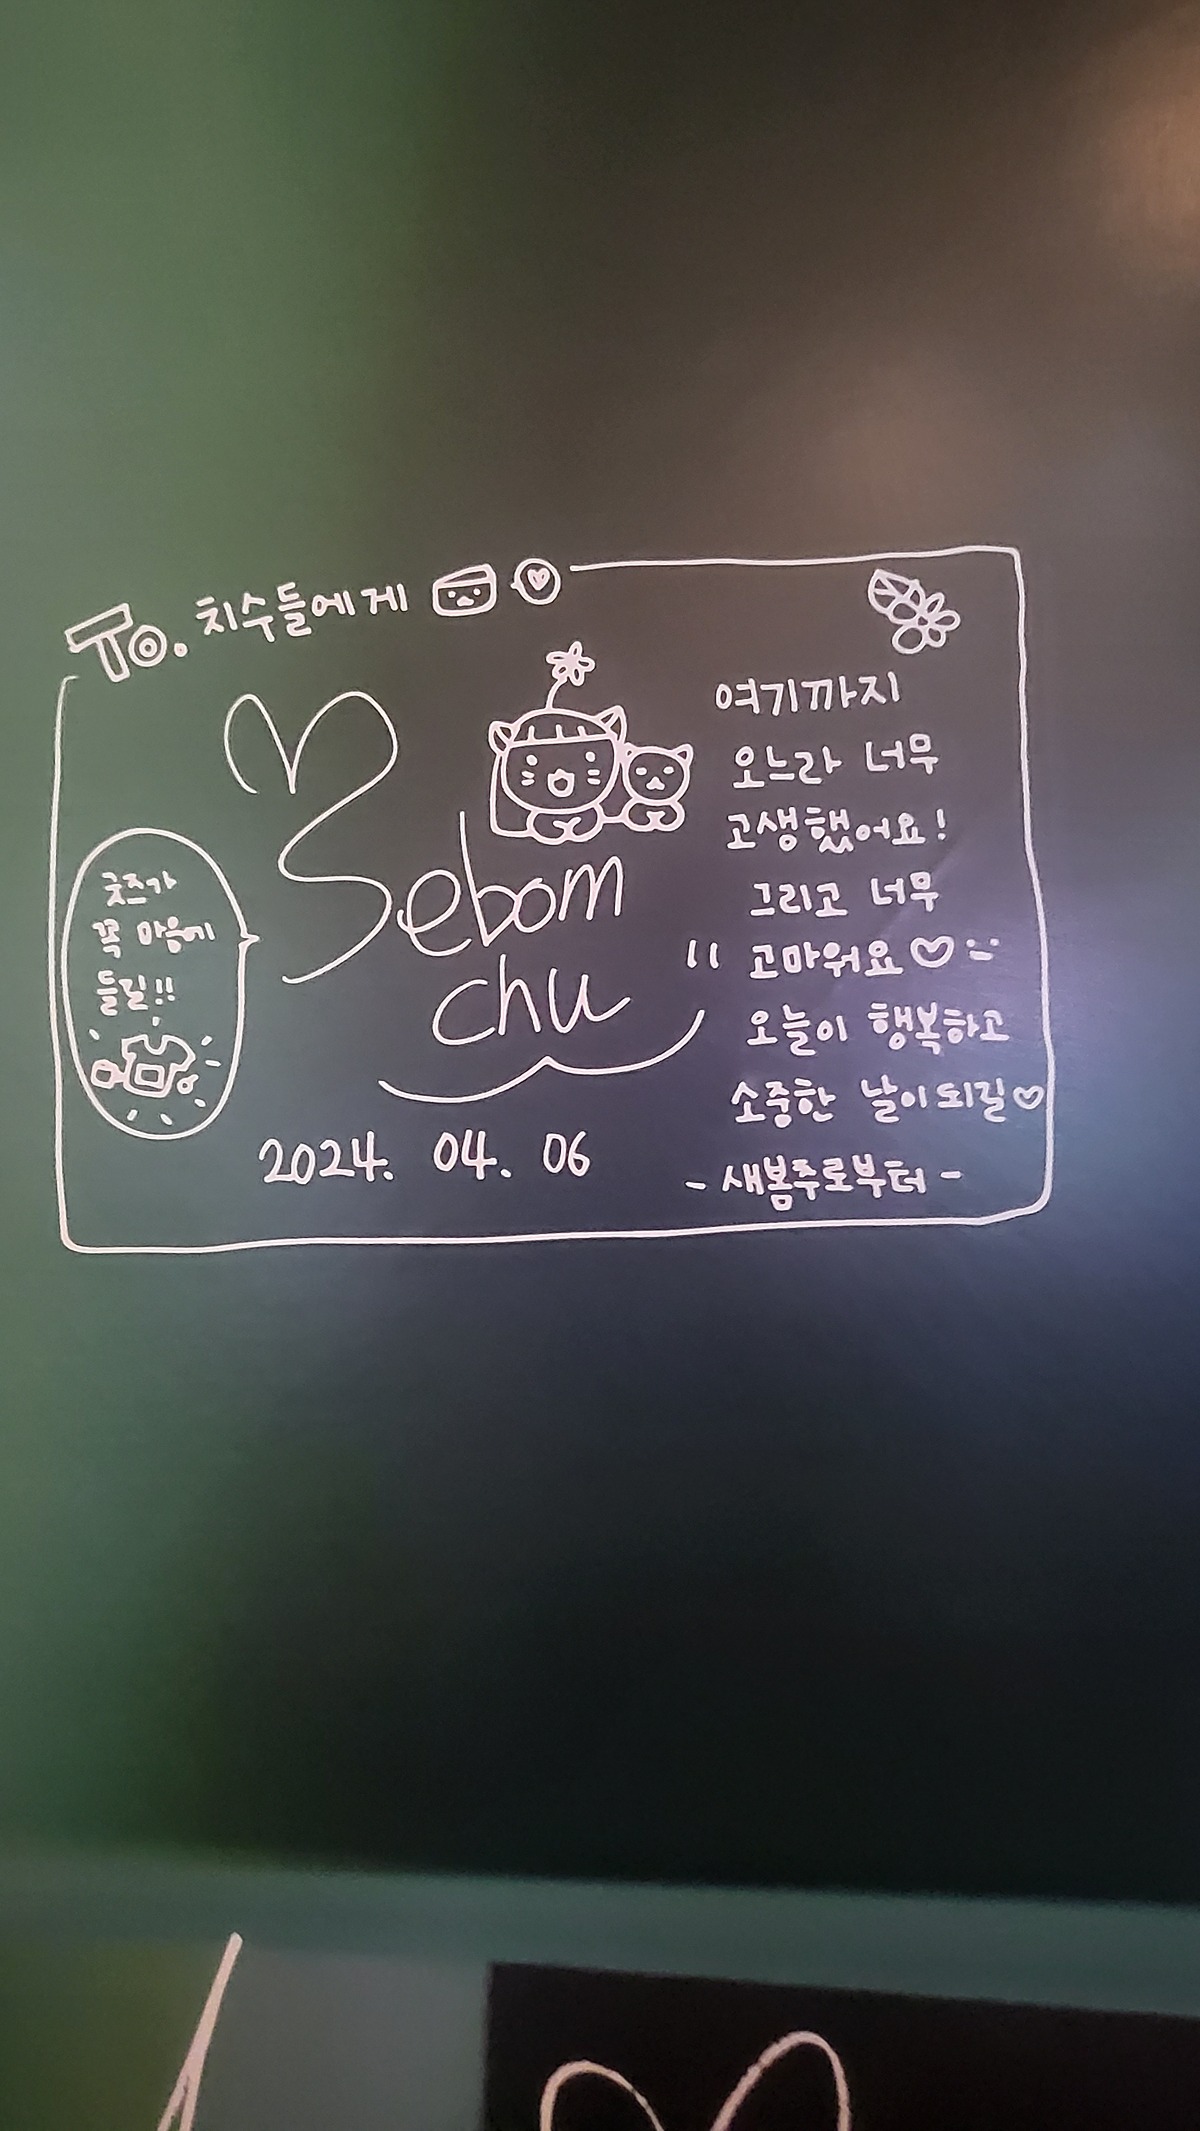 To. 치수들에게
여기까지
오느라 너무
고생했어요!
그리고 너무
고마워요♡
오늘이 행복하고
소중한 날이되길♡
- 새봄추로부터 -
Sebom
chu
굿즈가
꼭 마음에
들길!!
2024. 04. 06